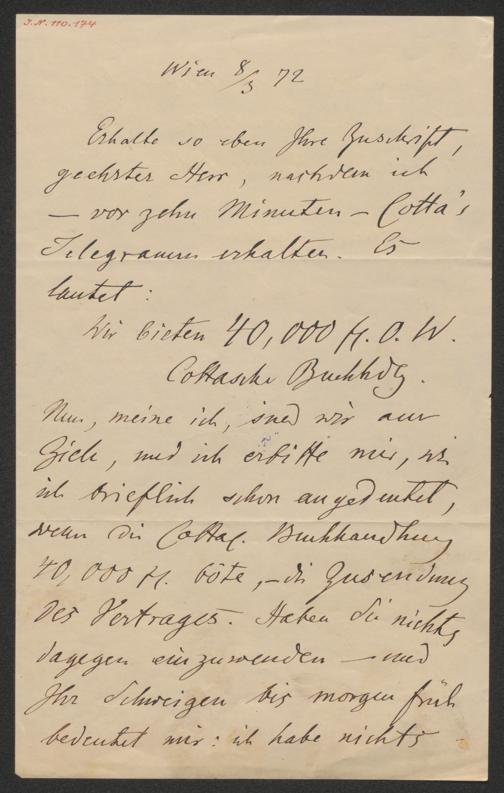 J.N. 110.174
Wien 8/3 72
Erhalte so eben Ihre Zuschrift,
geehrter Herr, nachdem ich
– vor zehn Minuten – Cotta's
Telegramm erhalten. Es
lautet:
Wir bieten 40,000 fl. O. W.
Cottasche Buchhdlg.
Nun, meine ich, sind wir am
Ziele, und ich erbitte mir, wie
ich brieflich schon angedeutet,
wenn die Cotta. Buchhandlung
40,000 fl. böte, – die Zusendung
des Vertrages. Haben Sie nichts
dagegen einzuwenden – und
Ihr Schweigen bis morgen früh
bedeutet mir: ich habe nichts